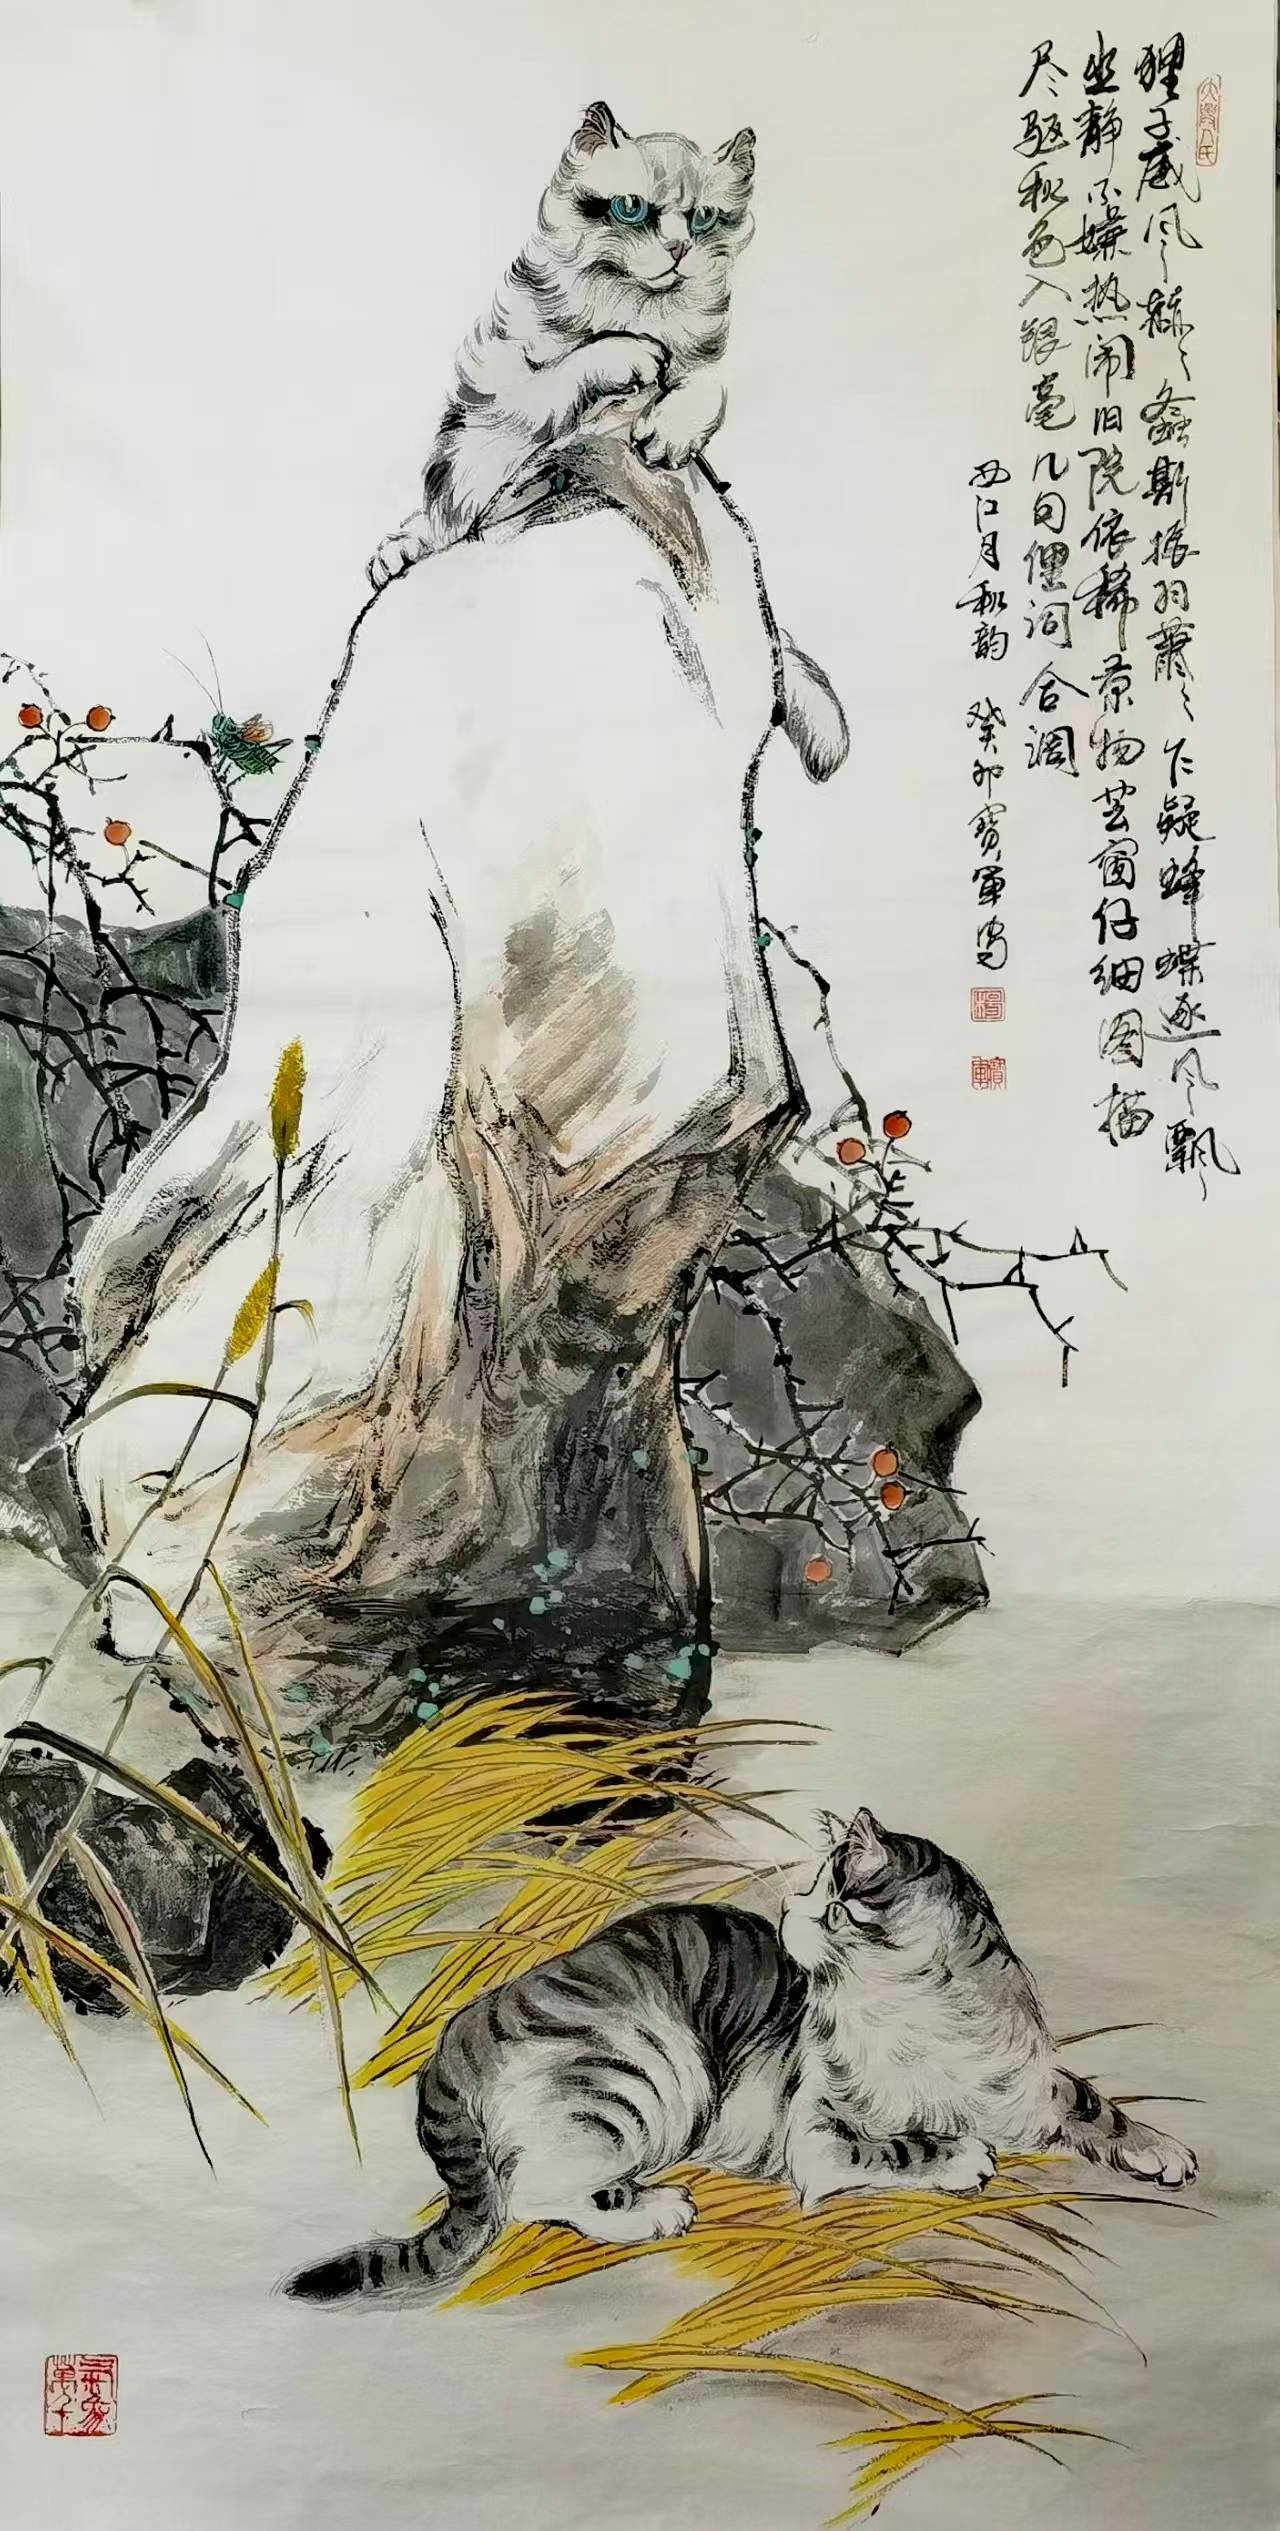 狸子威风赫〻螽斯振羽萧〻乍疑蜂蝶逐风飘
坐静不嫌热闹旧院依稀景物芸窗仔细图描
尽驱秋色入银毫几句俚词合调
西江月秋韵 癸卯寳军写
楊
寳軍
萬千